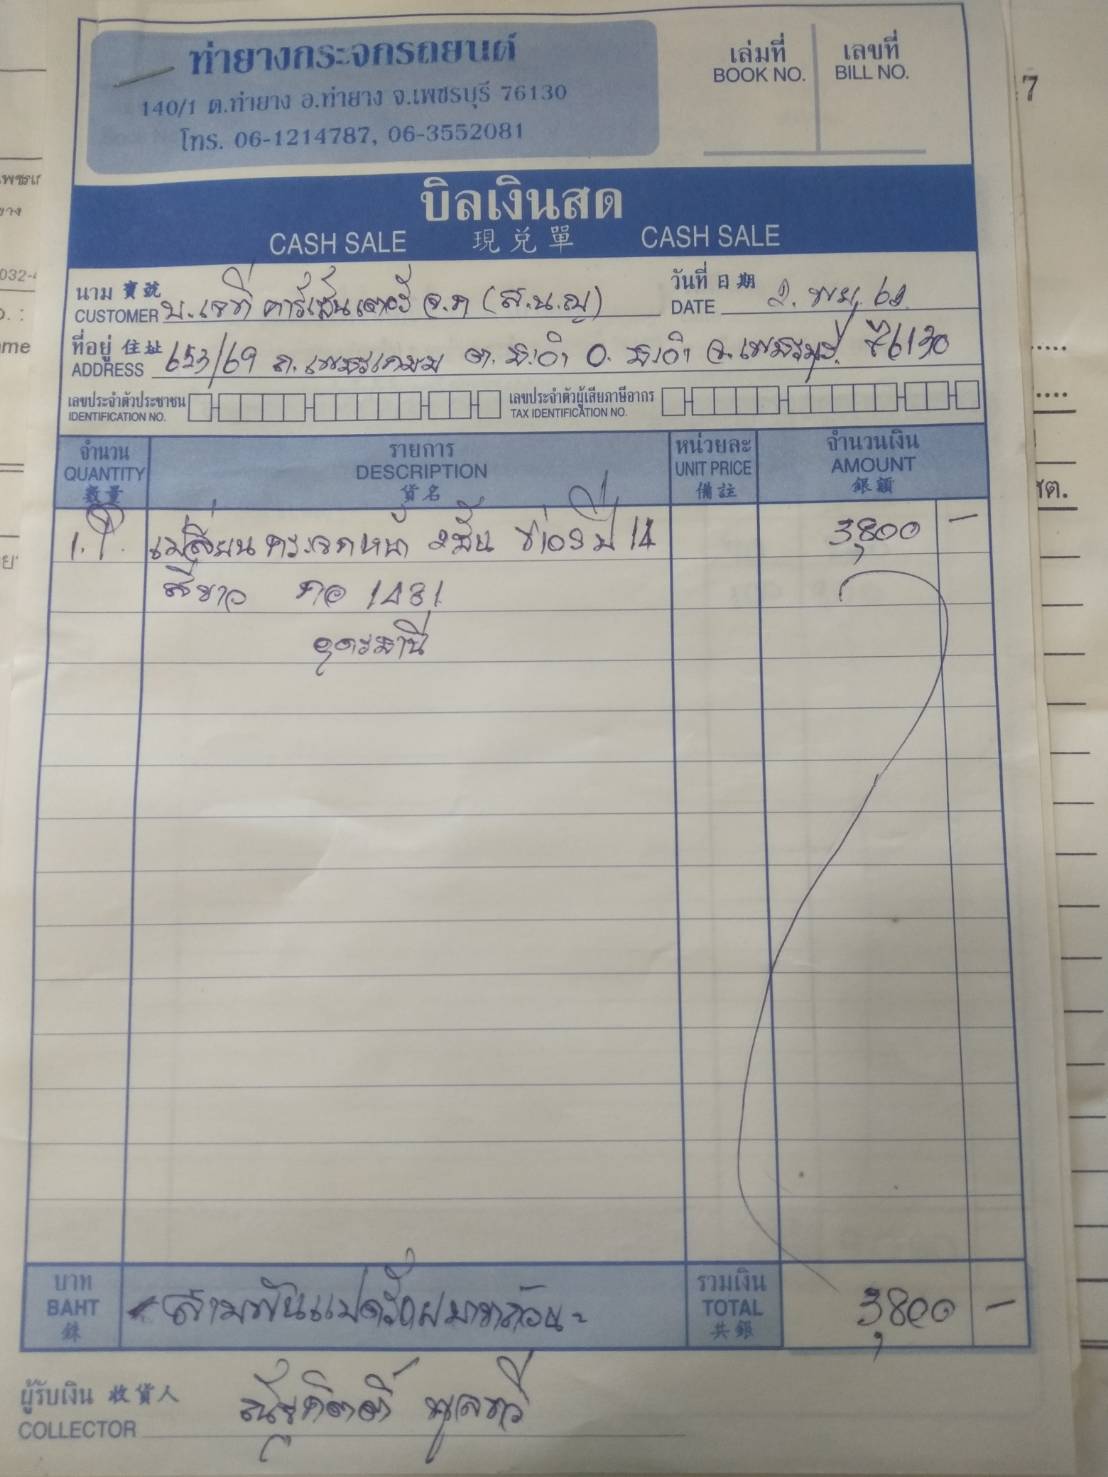 ท่ายางกระจกรถยนต์
140/1 ต.ท่ายาง อ.ท่ายาง จ.เพชรบุรี 76130
โทร. 06-1214787, 06-3552081
เล่มที่ เลขที่
BOOK NO. BILL NO.
7
บิลเงินสด
CASH SALE 現兌單 CASH SALE
นาม 寶號 บ. เจที คาร์เซ็นเตอร์ จ.ก (ส.น.ญ) วันที่ 日期
CUSTOMER DATE 2. พย, 62
ที่อยู่ 住址 653/69 ถ. เพชรเกษม ต. ชะอำ อ. ชะอำ จ. เพชรบุรี 76130
ADDRESS
เลขประจำตัวประชาชน เลขประจำตัวผู้เสียภาษีอากร
IDENTIFICATION NO. TAX IDENTIFICATION NO.
จำนวน รายการ หน่วยละ จำนวนเงิน
QUANTITY DESCRIPTION UNIT PRICE AMOUNT
數量 貨名 備註 銀額
เปลี่ยน กระจกหน้า 2ชั้น ปี 14 3,800 -
สีขาว กอ 1481
อุดรธานี
บาท สามพันแปดร้อยบาทถ้วน รวมเงิน
BAHT TOTAL 3,800 -
銖 共銀
ผู้รับเงิน 收貨人
COLLECTOR